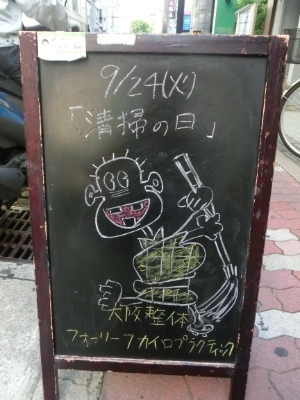 9/24(火)
「清掃の日」
大阪整体
フォーリーフカイロプラクティック